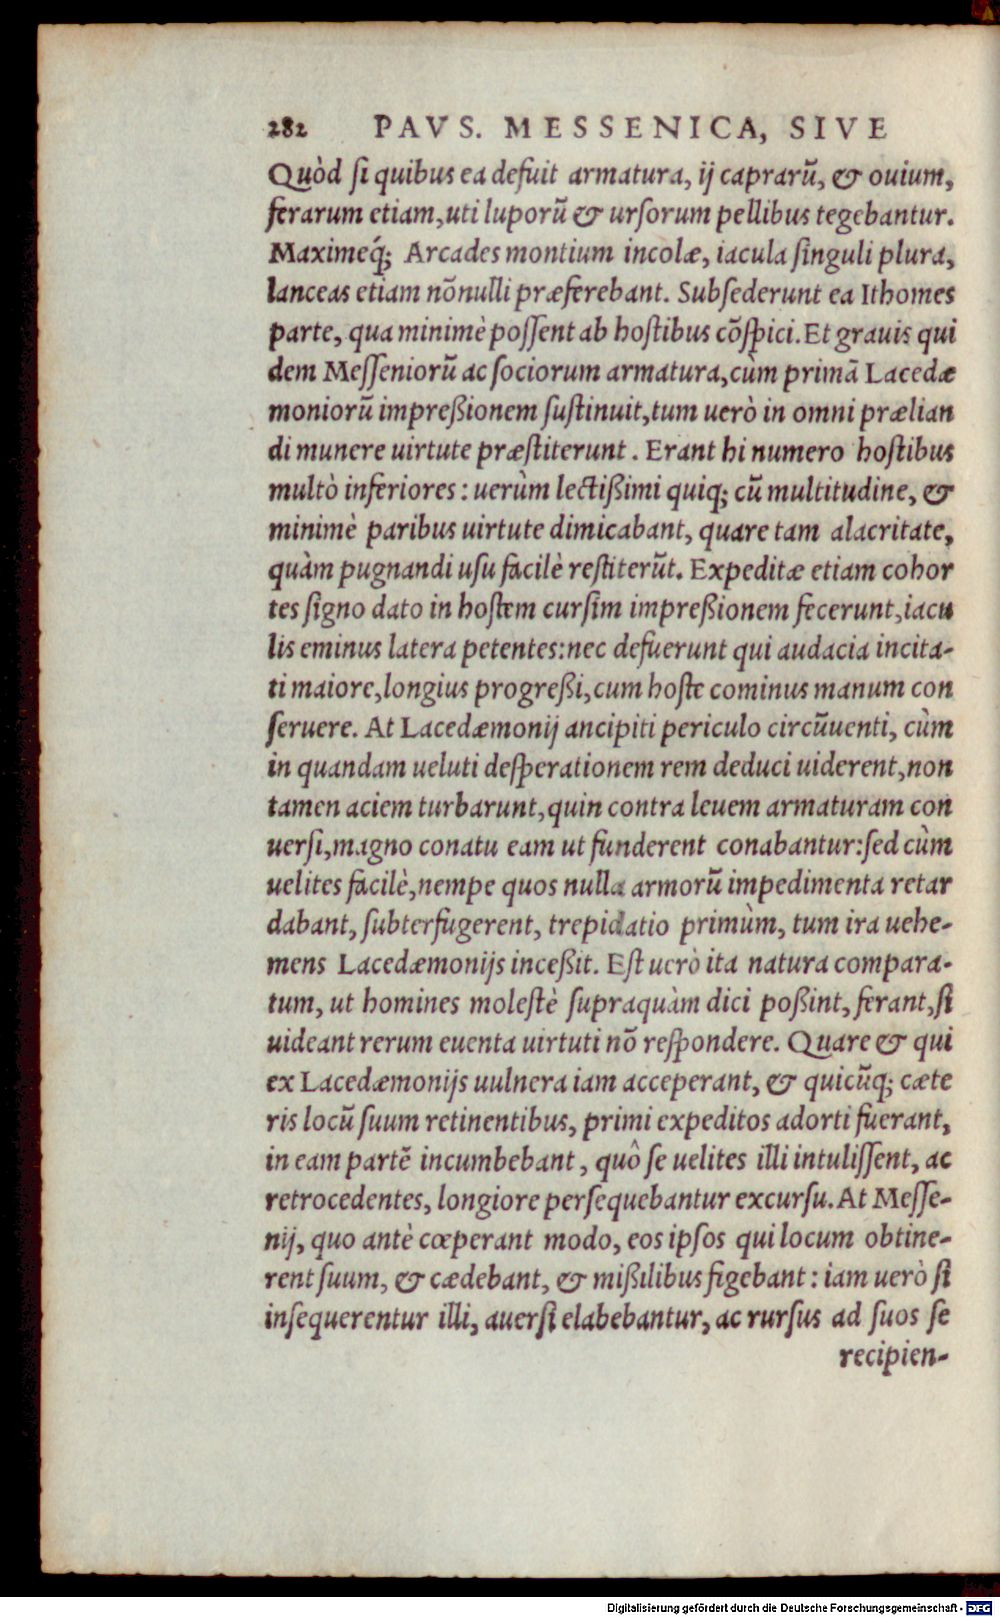 282 PAVS. MESSENICA, SIVE
Quòd ſi quibus ea defuit armatura, ij caprarũ, & ouium,
ferarum etiam, uti luporũ & urſorum pellibus tegebantur.
Maximeq́; Arcades montium incolæ, iacula ſinguli plura,
lanceas etiam nõnulli præferebant. Subſederunt ea Ithomes
parte, qua minimè poſſent ab hoſtibus cõſpici. Et grauis qui
dem Meſſeniorũ ac ſociorum armatura, cùm primã Lacedæ
moniorũ impreßionem ſuſtinuit, tum uerò in omni prælian
di munere uirtute præſtiterunt. Erant hi numero hoſtibus
multò inferiores: uerùm lectißimi quiq; cũ multitudine, &
minimè paribus uirtute dimicabant, quare tam alacritate,
quàm pugnandi uſu facilè reſtiterũt. Expeditæ etiam cohor
tes ſigno dato in hoſtem curſim impreßionem fecerunt, iacu
lis eminus latera petentes: nec defuerunt qui audacia incita-
ti maiore, longius progreßi, cum hoſte cominus manum con
ſeruere. At Lacedæmonij ancipiti periculo circũuenti, cùm
in quandam ueluti deſperationem rem deduci uiderent, non
tamen aciem turbarunt, quin contra leuem armaturam con
uerſi, magno conatu eam ut funderent conabantur: ſed cùm
uelites facilè, nempe quos nulla armorũ impedimenta retar
dabant, ſubterfugerent, trepidatio primùm, tum ira uehe-
mens Lacedæmonijs inceßit. Eſt uerò ita natura compara-
tum, ut homines moleſtè ſupraquàm dici poßint, ferant, ſi
uideant rerum euenta uirtuti nõ reſpondere. Quare & qui
ex Lacedæmonijs uulnera iam acceperant, & quicũq; cæte
ris locũ ſuum retinentibus, primi expeditos adorti fuerant,
in eam partẽ incumbebant, quò ſe uelites illi intuliſſent, ac
retrocedentes, longiore perſequebantur excurſu. At Meſſe-
nij, quo antè cœperant modo, eos ipſos qui locum obtine-
rent ſuum, & cædebant, & mißilibus figebant: iam uerò ſi
inſequerentur illi, auerſi elabebantur, ac rurſus ad ſuos ſe
recipien-
Digitalisierung gefördert durch die Deutsche Forschungsgemeinschaft - DFG